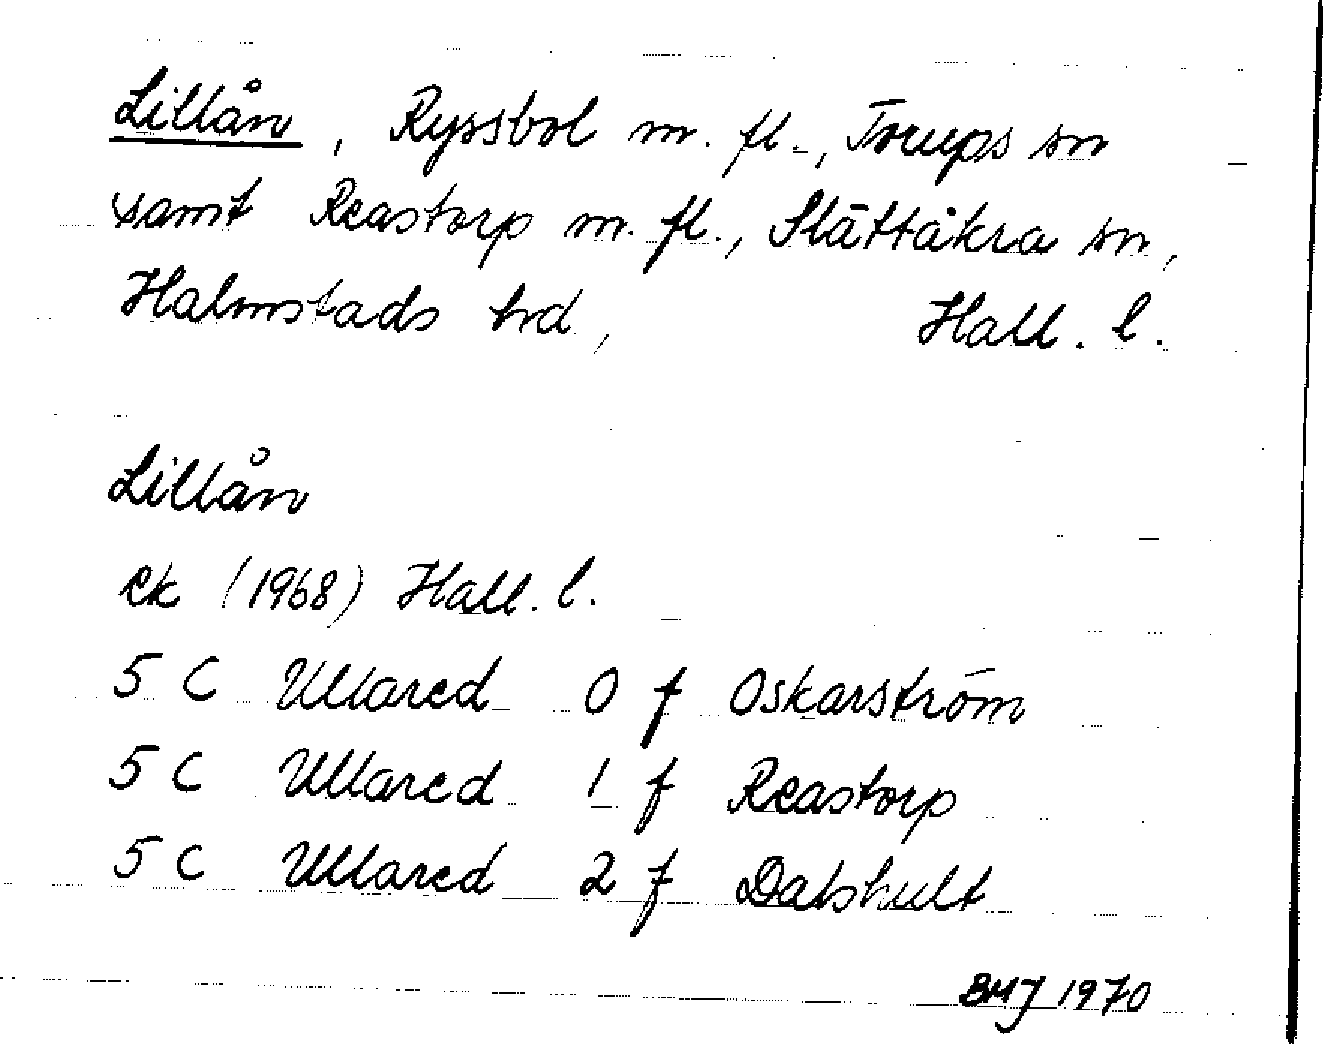 Lillån, Ryssbol m. fl., Torups sn
samt Reastorp m. fl., Slättåkra sn,
Halmstads hd, Hall. l.
Lillån
ek (1968) Hall. l.
5 C Ullared 0 f Oskarström
5 C Ullared 1 f Reastorp
5 C Ullared 2 f Dalshult
BMJ 1970